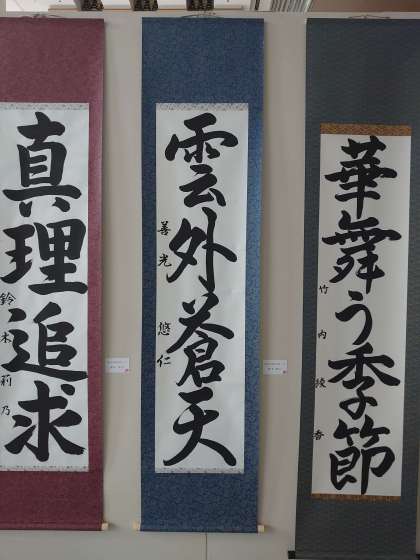 華舞う季節
竹内綾香
雲外蒼天
善光悠仁
真理追求
鈴木莉乃